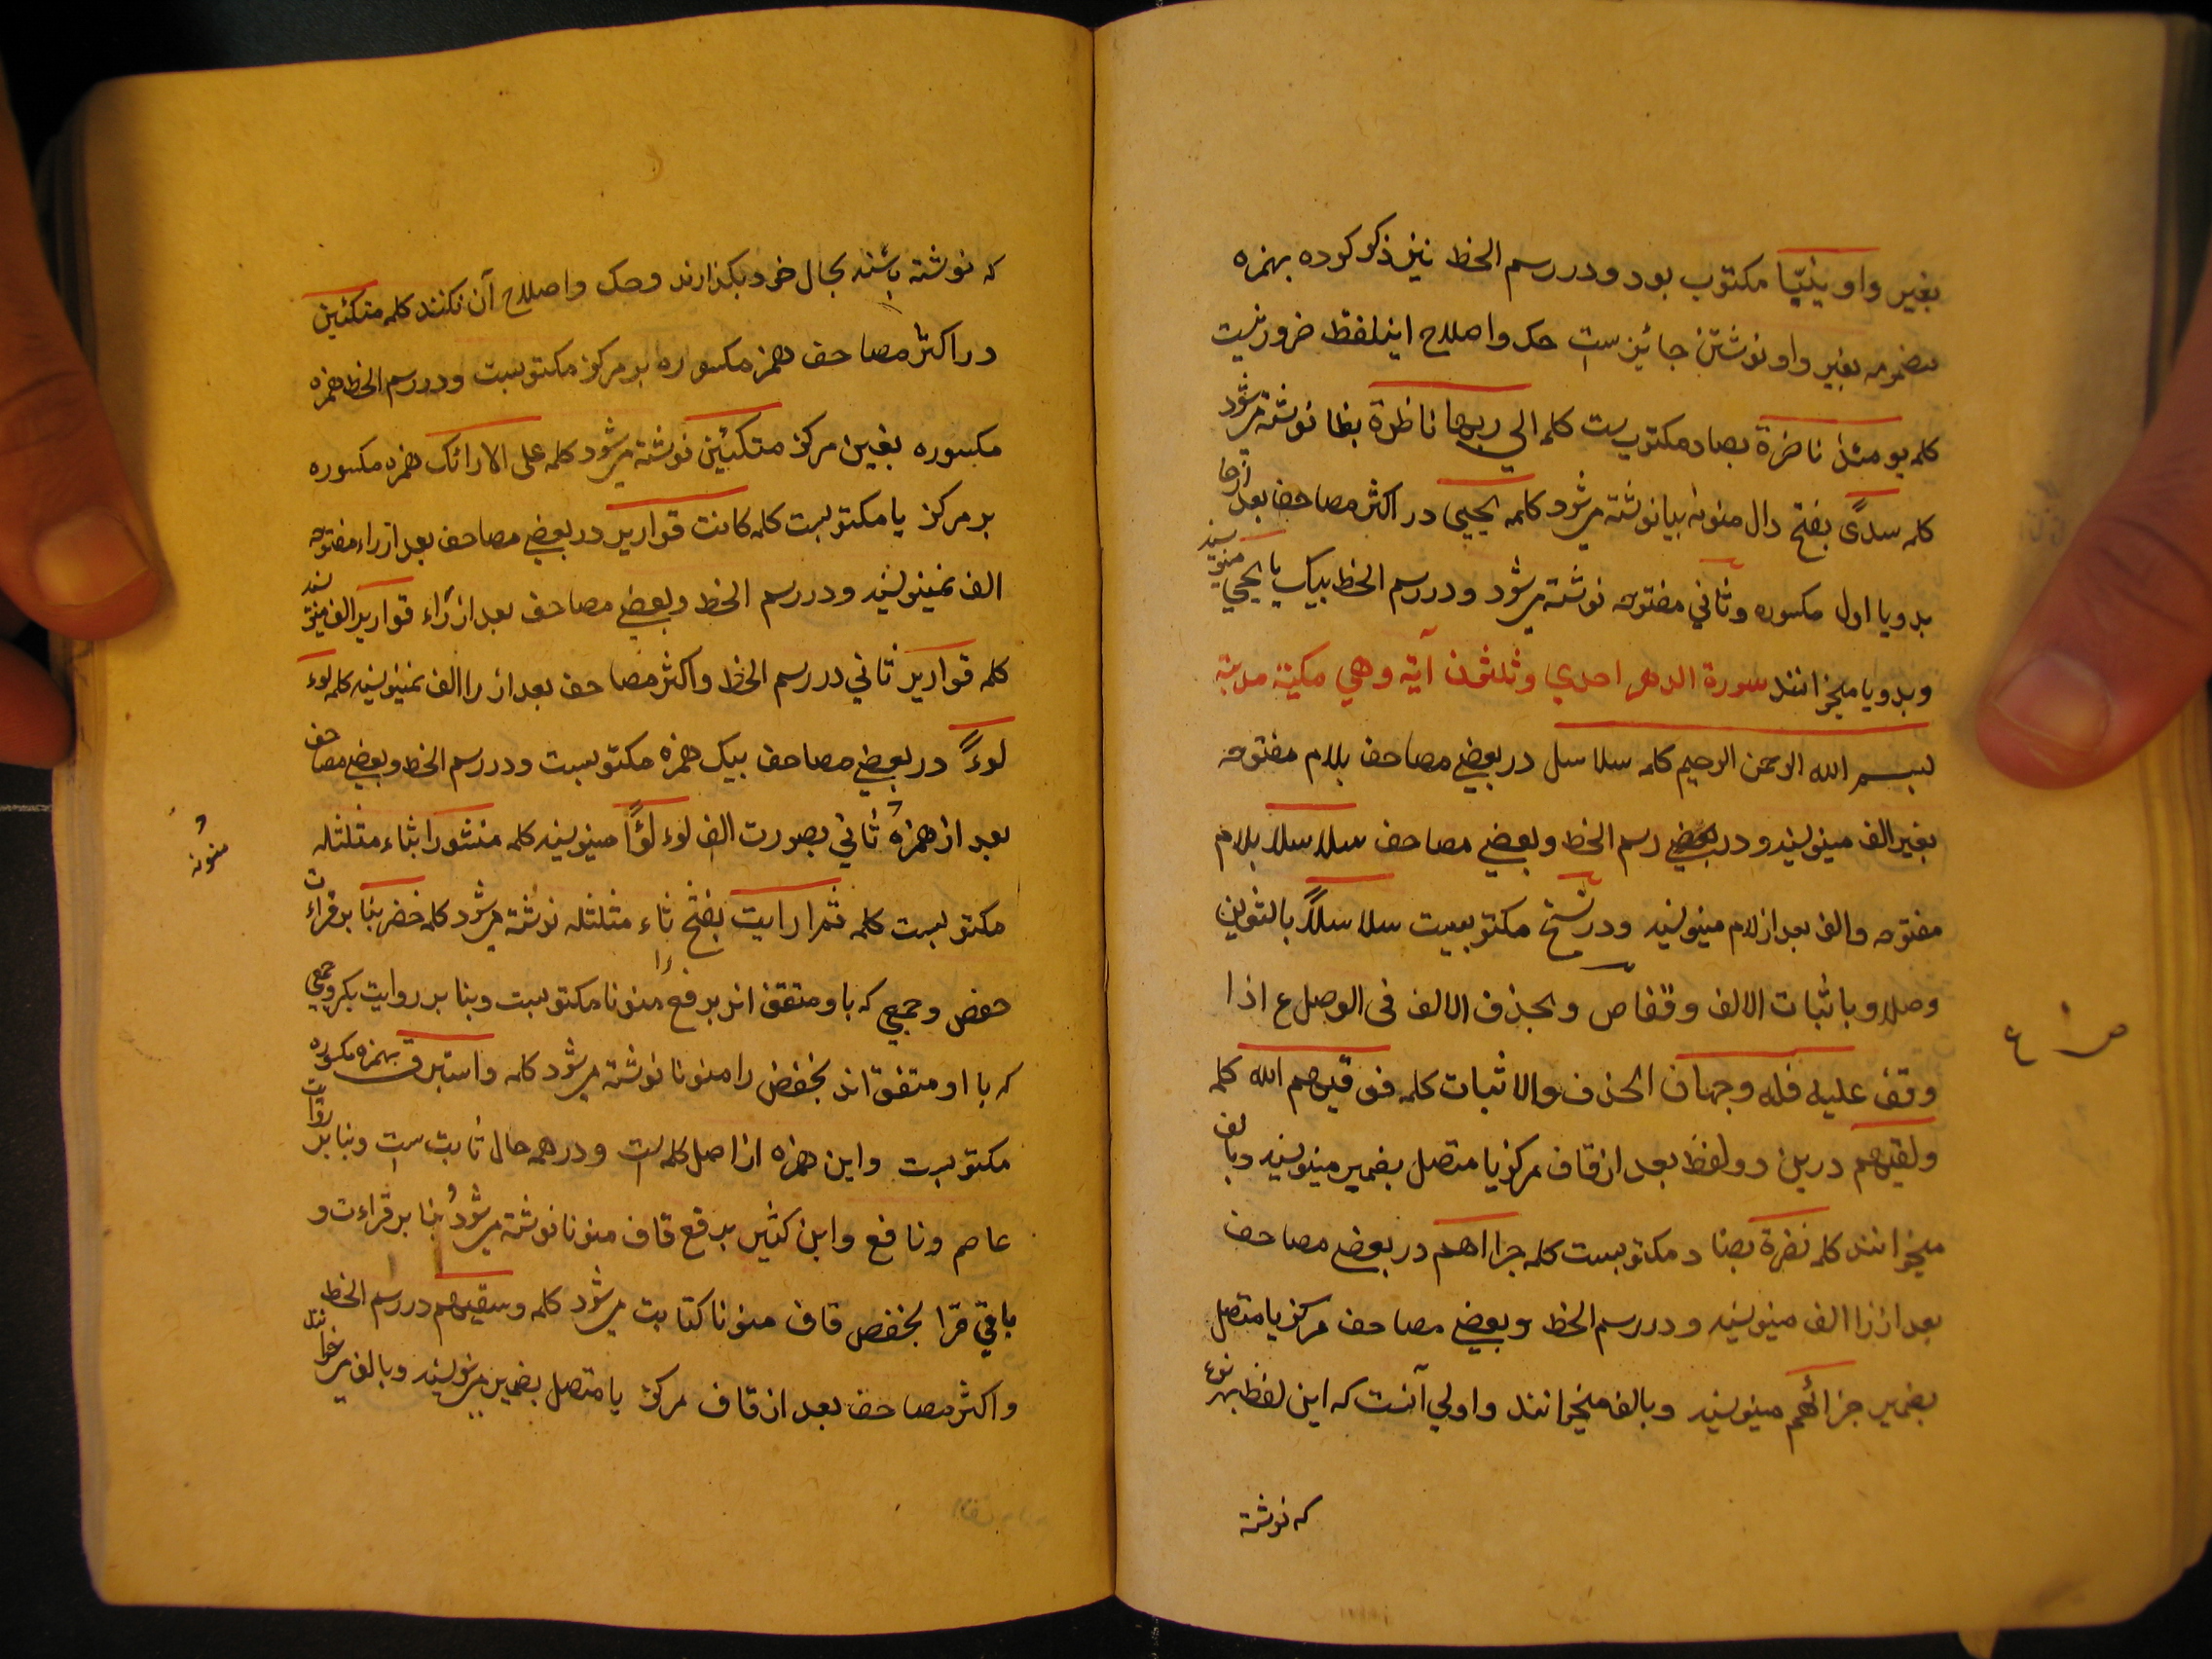 بغیر واو ینبّا مکتوب بود ودر رسم الخط نیز ذکر کوده بهمزه
مضمومه بغیر واو نوشتن جائیز ست حک واصلاح اینلفظ ضرور نیست
کلمه یومئذ ناضرة بصاد مکتوبست کلمه الی ربها ناظرة بظا نوشته میشود
کلمه سدًی بفتح دال منونه بیا نوشته میشود کلمه یحیي در اکثر مصاحف بعد از حا
بدو یا اول مکسوره وثاني مفتوحه نوشته میشود ودر رسم الخط بیک یا یحي مینویسند
وبدو یا میخوانند سورة الدهر احدي وثلثون آیة وهي مکیّة مدنیة
بسم الله الرحمن الرحیم کلمه سلاسل در بعضي مصاحف بلام مفتوحه
بغیر الف مینویسند ودر بعضي رسم الخط وبعضي مصاحف سلاسلا بلام
مفتوحه والف بعد از لام مینویسند ودر نسخ مکتوبست سلاسلاً بالتنوین
وصلا وباثبات الالف وقفا ص وبحذف الالف فی الوصل ع اذا
وقف علیه فله وجهان الحذف والاثبات کلمه فوقیهم الله کلمه
ولقیهم درین دو لفظ بعد از قاف مرکز یا متصل بضمیر مینویسند وبالف
میخوانند کلمه نضرة بضاد مکتوبست کلمه جزااهم در بعضي مصاحف
بعد از زا الف مینویسند ودر رسم الخط وبعضي مصاحف مرکز یا متصل
بضمیر جزائهم مینویسند وبالف میخوانند واولي آنست که این لفظ بهر نوع
که نوشته
ص ا ع
که نوشته باشند بحال خود بکذارند وحک واصلاح آن نکنند کلمه متکئین
در اکثر مصاحف همزه مکسوره بر مرکز مکتوبست ودر رسم الخط همزه
مکسوره بغیر مرکز متکئین نوشته میشود کلمه علی الارائک همزه مکسوره
بر مرکز یا مکتوبست کلمه کانت قواریر در بعضي مصاحف بعد از راء مفتوحه
الف نمینویسند ودر رسم الخط وبعضي مصاحف بعد از راء قواریر الف مینویسند
کلمه قواریر ثاني در رسم الخط واکثر مصاحف بعد از را الف نمینویسند کلمه لوء
لوءً در بعضي مصاحف بیک همزه مکتوبست ودر رسم الخط وبعضي مصاحف
بعد از همزه ثاني بصورت الف لوء لؤًا مینویسند کلمه منثورا بثاء مثلثه
مکتوبست کلمه ثم رایت بفتح ثاء مثلثه نوشته میشود کلمه خضر بنا بر قراءت
حفص وجمعي که با و متفق اند برفع را منونا مکتوبست وبنا بر روایت بکر وجمعي
که با او متفق اند بخفض را منونا نوشته میشود کلمه واستبرق بهمزه مکسوره
مکتوبست واین همزه از اصل کلمه است ودر همه حال ثابت ست وبنا بر قراءت
عاصم ونافع وابن کثیر برفع قاف منونا نوشته میشود وبنا بر قراءت و
باقي قرا بخفض قاف منونا کتابت میشود کلمه وسقیهم در رسم الخط
واکثر مصاحف بعد از قاف مرکز یا متصل بضمیر مینویسند وبالف میخوانند
و
منونه